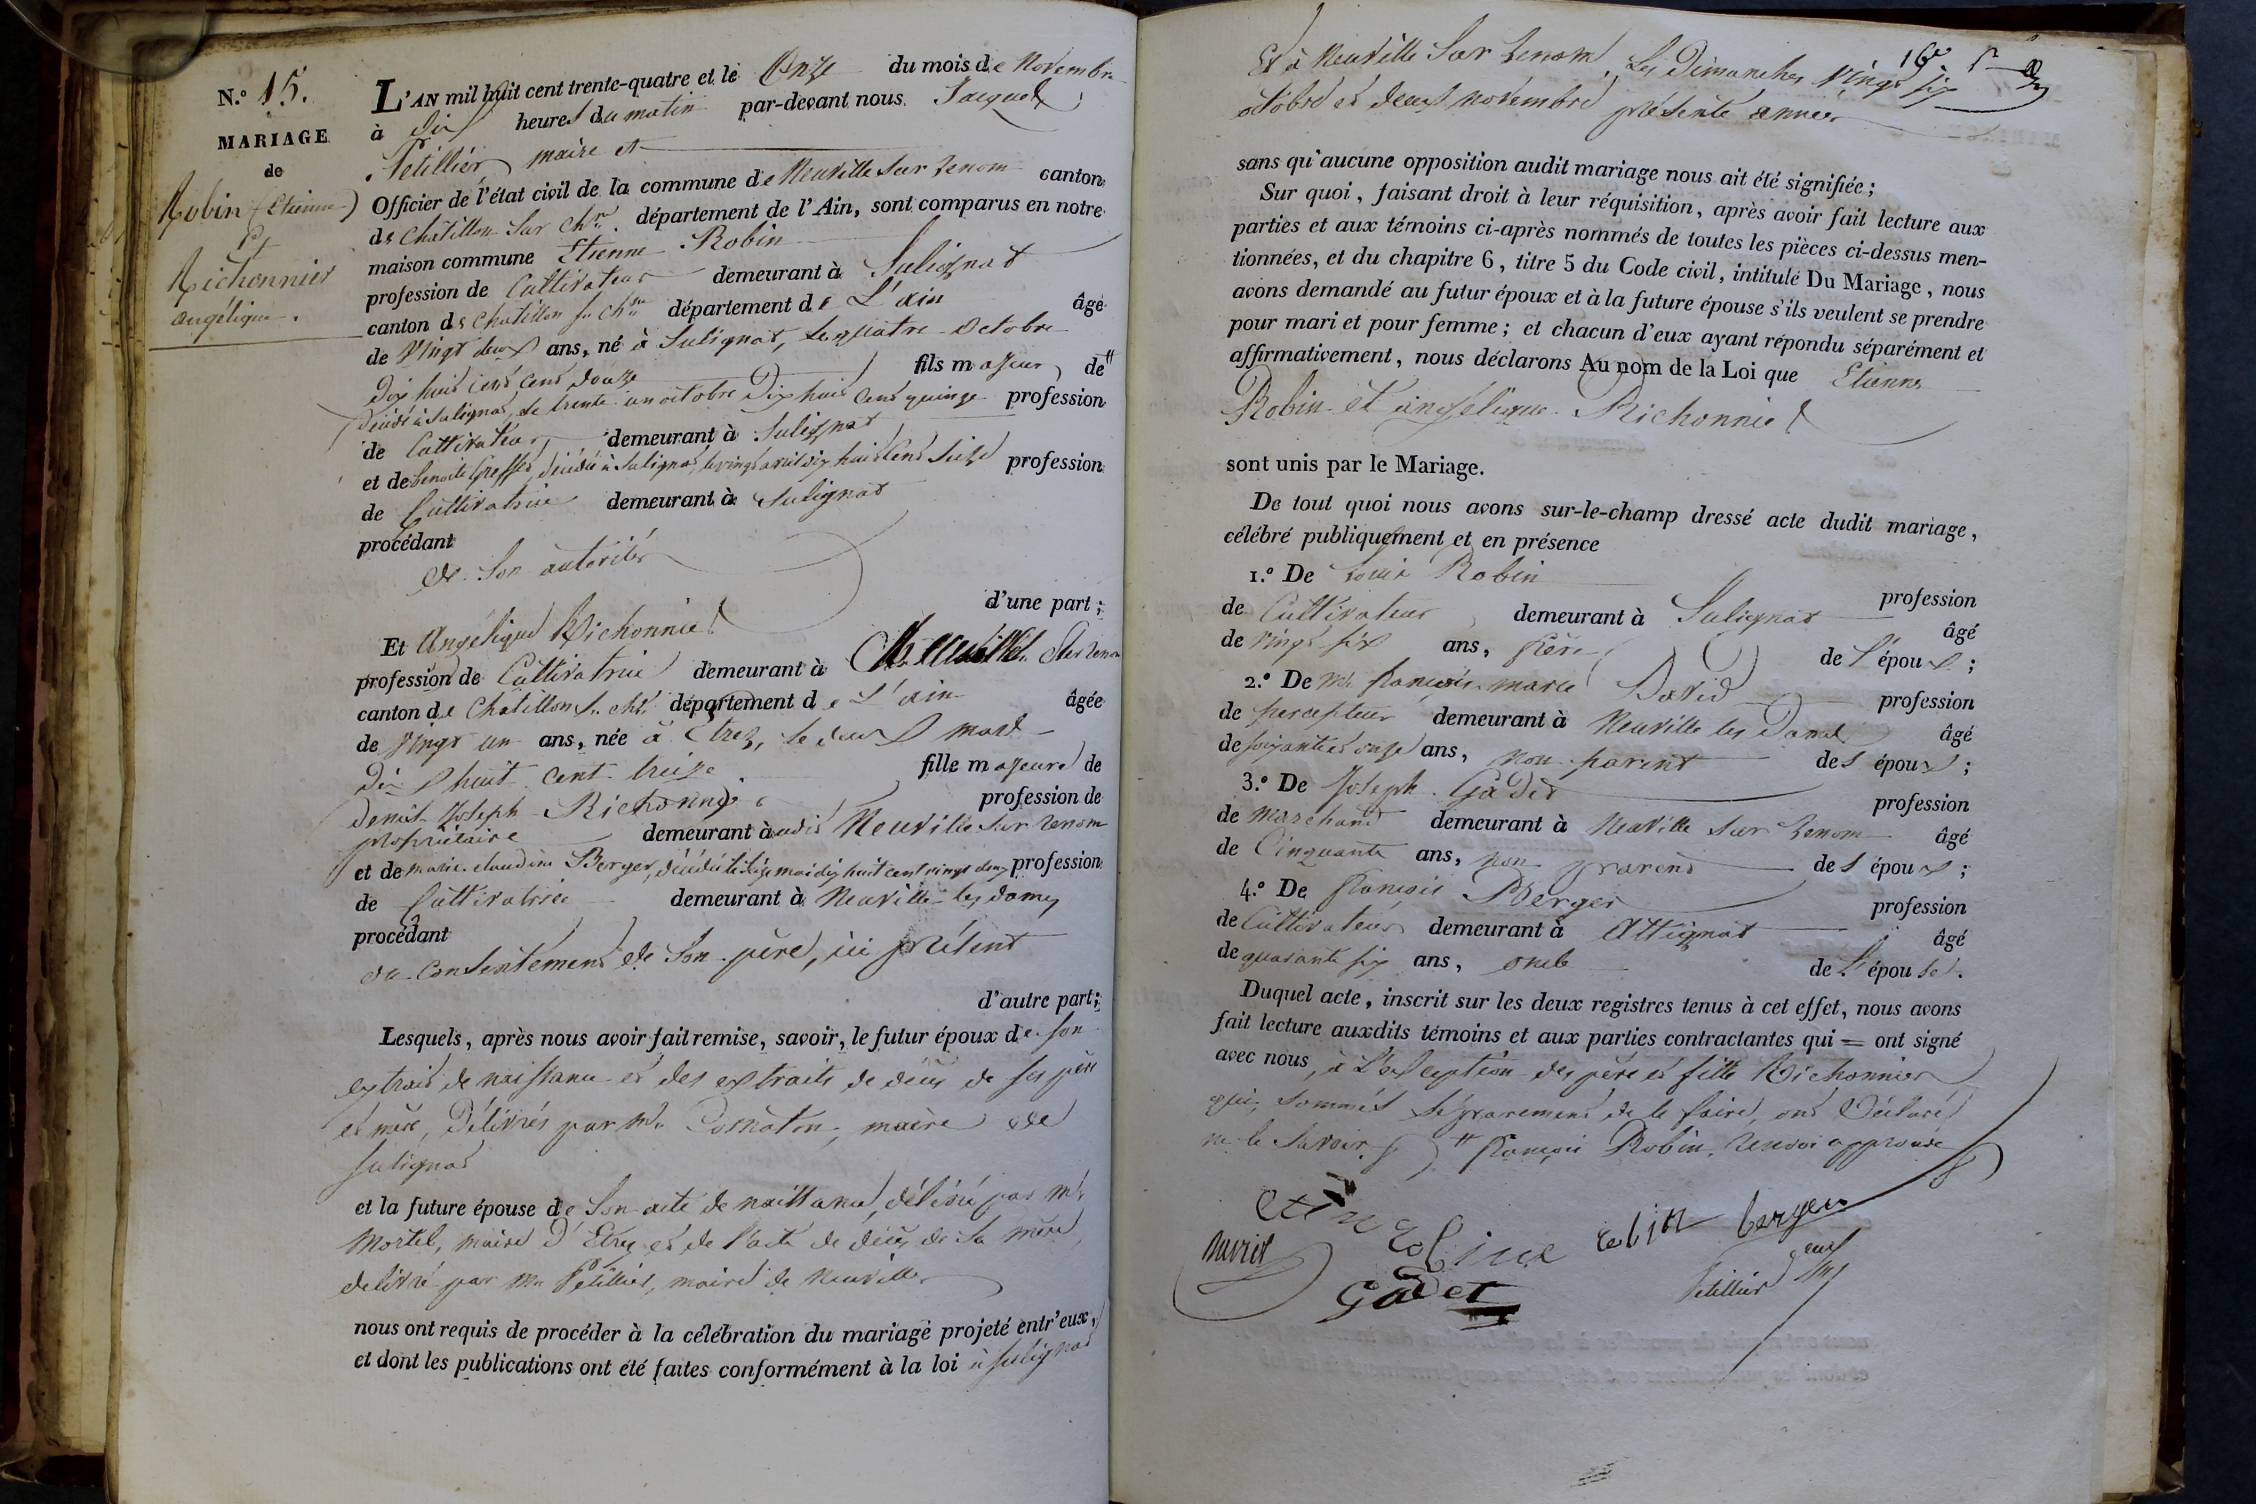 N.º 15.
MARIAGE
de
Robin (Etienne)
et
Richonnier
angélique.
L'AN mil huit cent trente-quatre et le Onze du mois de Novembre
à dix heures du matin par-devant nous Jacques
Petillier, maire et
Officier de l'état civil de la commune de Neuville sur Renom canton
de Chatillon sur Chne. département de l'Ain, sont comparus en notre
maison commune Etienne Robin
profession de Cultivateur demeurant à Sulignat
canton de Chatillon sr. Chne département de L'ain âgé
de Vingt deux ans, né à Sulignat, le quatre Octobre
Dix huit cent douze fils majeur, de #
décédé à Sulignat, le trente un octobre Dix huit cent quinze profession
de Cultivateur demeurant à Sulignat
et de Benoite Greffet, décédée à Sulignat, le vingt avril dix huit cent seize profession
de Cultivatrice demeurant à Sulignat
procédant
de son autorité
d'une part ;
Et Angélique Richonnier
profession de Cultivatrice demeurant à Neuville Sur Renom
canton de Chatillon s. chne. département de L'ain âgée
de Vingt un ans, née à Etrez, le deux mars
Dix huit cent treize fille majeure de
Denis Joseph Richonnier profession de
propriétaire demeurant audit Neuville Sur Renom
et de marie claudine Berger, décédée le dix mai dix huit cent vingt deux profession
de Cultivatrice demeurant à Neuville les dames
procédant
du consentement de Son père, ici présent
d'autre part ;
Lesquels, après nous avoir fait remise, savoir, le futur époux de son
extrait de naissance et des extraits de décès de ses père
et mère, Délivrés par mr. Comaton, maire de
Sulignat
et la future épouse de Son acte de naissance, délivré par mr.
Mortel, maire d'Etrez et de l'acte de décès de Sa mère,
delivré par mr. Petillier, maire de Neuville
nous ont requis de procéder à la célébration du mariage projeté entr'eux,
et dont les publications ont été faites conformément à la loi à Sulignat
16e
Et à Neuville Sur Renom, Les Dimanches Vingt six
octobre et deux novembre présente année
sans qu'aucune opposition audit mariage nous ait été signifiée ;
Sur quoi, faisant droit à leur réquisition, après avoir fait lecture aux
parties et aux témoins ci-après nommés de toutes les pièces ci-dessus men-
tionnées, et du chapitre 6, titre 5 du Code civil, intitulé Du Mariage, nous
avons demandé au futur époux et à la future épouse s'ils veulent se prendre
pour mari et pour femme ; et chacun d'eux ayant répondu séparément et
affirmativement, nous déclarons Au nom de la Loi que Etienne
Robin et angélique Richonnier
sont unis par le Mariage.
De tout quoi nous avons sur-le-champ dressé acte dudit mariage,
célébré publiquement et en présence
1.º De Louis Robin profession
de Cultivateur, demeurant à Sulignat âgé
de vingt six ans, frère de l'époux ;
2.º De mr. françois marie David profession
de percepteur demeurant à Neuville les Dames âgé
de soixante et onze ans, non parent des époux ;
3.º De Joseph Gadet profession
de marchand demeurant à Neuville Sur Renom âgé
de Cinquante ans, non parent des époux ;
4.º De françois Berger profession
de Cultivateur demeurant à Attignat âgé
de quarante six ans, oncle de L'épouse.
Duquel acte, inscrit sur les deux registres tenus à cet effet, nous avons
fait lecture auxdits témoins et aux parties contractantes qui = ont signé
avec nous, à L'exception des père et fille Richonnier
qui, Sommés séparement de le faire, ont Déclaré
ne le Savoir. # françois Robin, renvoi approuvé
robin berger
David
Gadet
Petillier